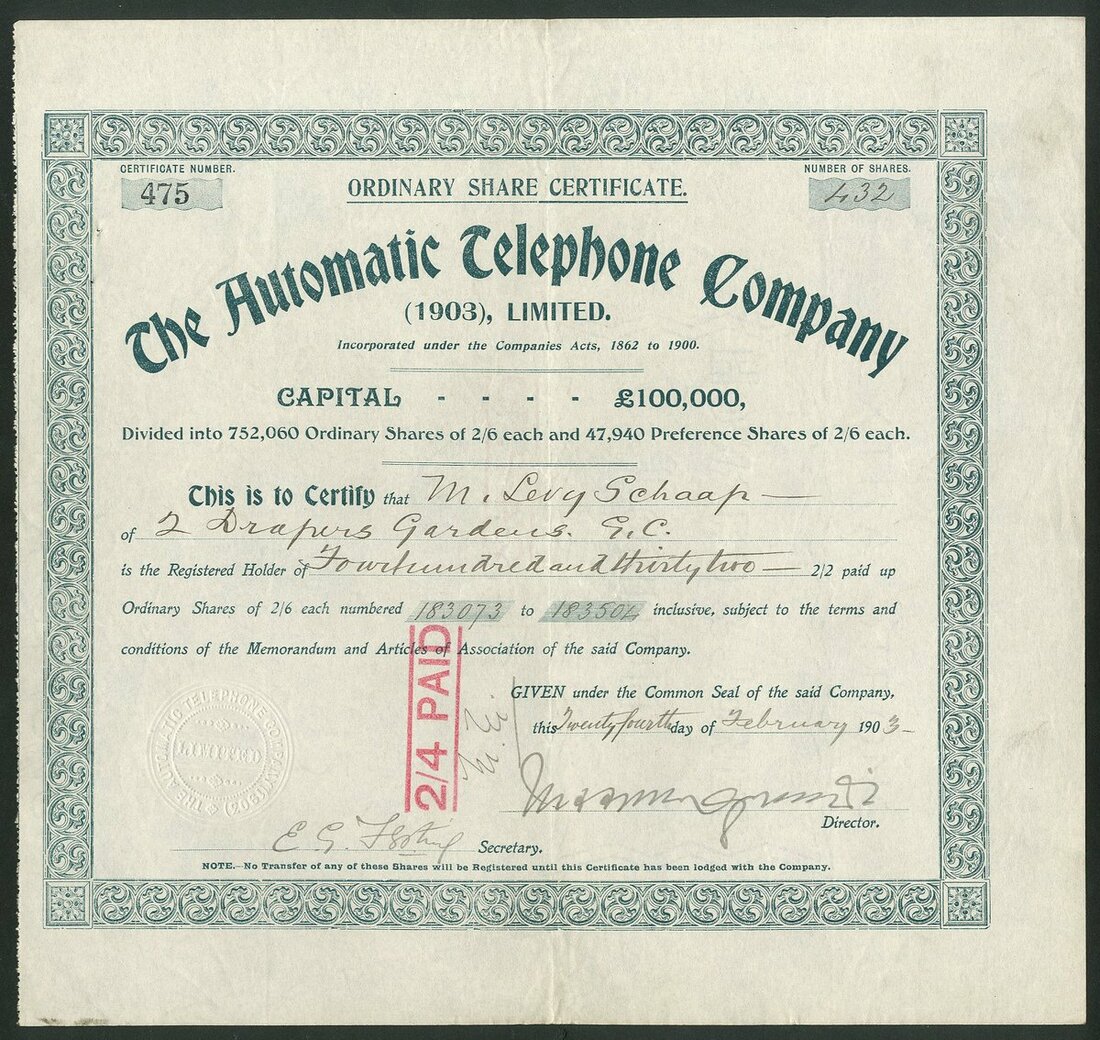 CERTIFICATE NUMBER.
475
ORDINARY SHARE CERTIFICATE.
NUMBER OF SHARES.
432
The Automatic Telephone Company
(1903), LIMITED.
Incorporated under the Companies Acts, 1862 to 1900.
CAPITAL - - - - £100,000,
Divided into 752,060 Ordinary Shares of 2/6 each and 47,940 Preference Shares of 2/6 each.
This is to Certify that M. Levy Schaap
of 2 Drapers Gardens. E.C.
is the Registered Holder of Four hundred and thirty two 2/2 paid up
Ordinary Shares of 2/6 each numbered 183073 to 183504 inclusive, subject to the terms and
conditions of the Memorandum and Articles of Association of the said Company.
2/4 PAID
GIVEN under the Common Seal of the said Company,
this Twenty fourth day of February 1903
THE AUTOMATIC TELEPHONE COMPANY (1903)
LIMITED
Director.
E. G. Secretary.
NOTE.—No Transfer of any of these Shares will be Registered until this Certificate has been lodged with the Company.